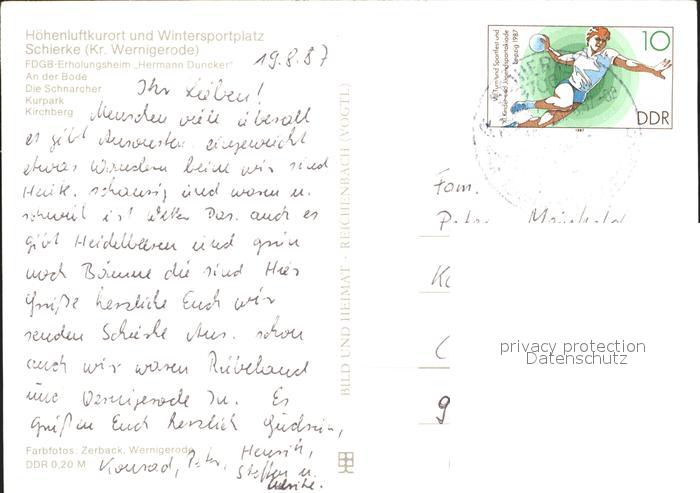 Höhenluftkurort und Wintersportplatz
Schierke (Kr. Wernigerode)
FDGB-Erholungsheim „Hermann Duncker"
An der Bode
Die Schnarcher
Kurpark
Kirchberg
19.8.87
Ihr Lieben!
Menschen viele überall
es gibt Ansonsten. eingeweicht
etwas Wandern beim wir sind
Heute. schausig und waren u.
schwül ist Wetter Das. auch es
gibt Heidelbeeren und grün
noch Bäume die sind Hier
Grüße herzliche Euch wir
senden Schierke Aus. schon
auch wir waren Rübeland
und Wernigerode In. Es
grüßen Euch herzlich Gudrun,
Konrad, Peter, Henrik,
Steffen u.
Farbfotos: Zerback, Wernigerode
DDR 0,20 M
BILD UND HEIMAT · REICHENBACH (VOGTL)
Turn- und Sportfest und
Kinder- und Jugendspartakiade
Leipzig 1987
10
DDR
1987
Fam.
Peter
privacy protection
Datenschutz